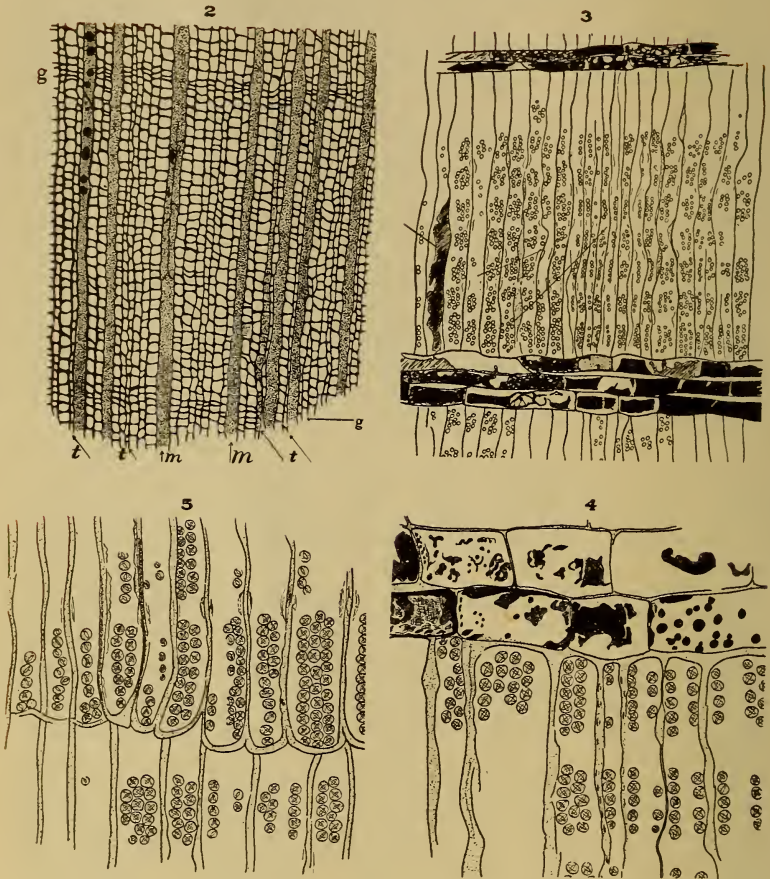 2
3
g
g
t
t
m
m
t
5
4